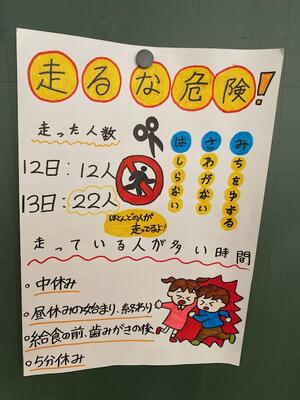 走るな危険!
走った人数
12日:12人
13日:22人
ほとんどの人が
走ってるよ!
みちをゆずる
さわがない
はしらない
走っている人が多い時間
。中休み
。昼休みの始まり、終わり
。給食の前、歯みがきの後
。5分休み